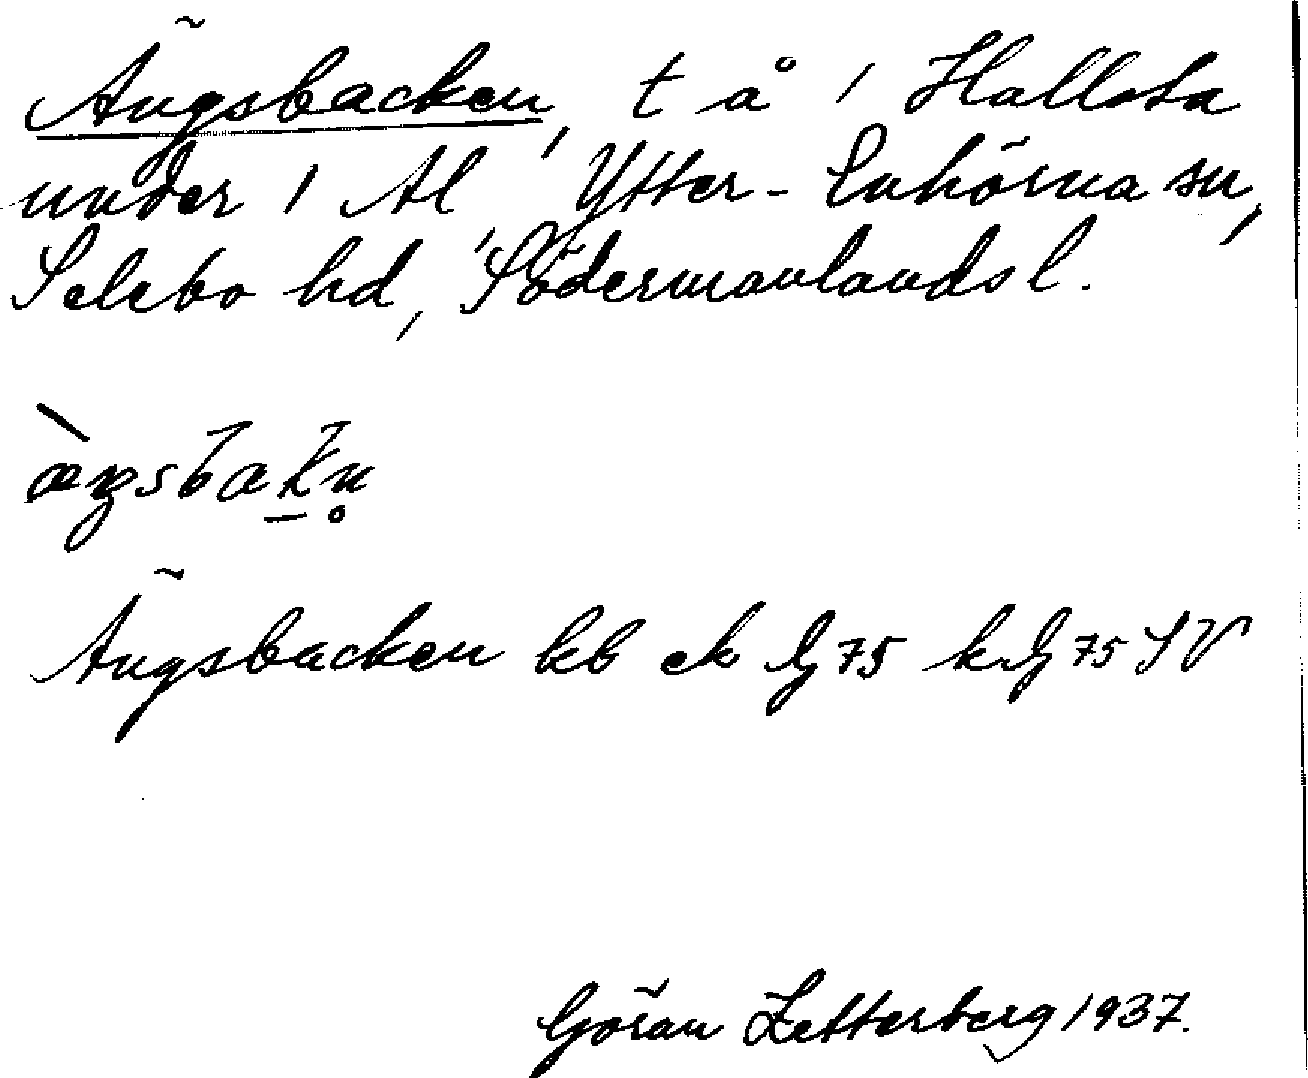 Ängsbacken, t å 1 Hallsta
under 1 Al, Ytter-Enhörna sn,
Selebo hd, Södermanlands l.
Ängsbacken kb ek G75 k G75 SV
Göran Zetterberg 1937.